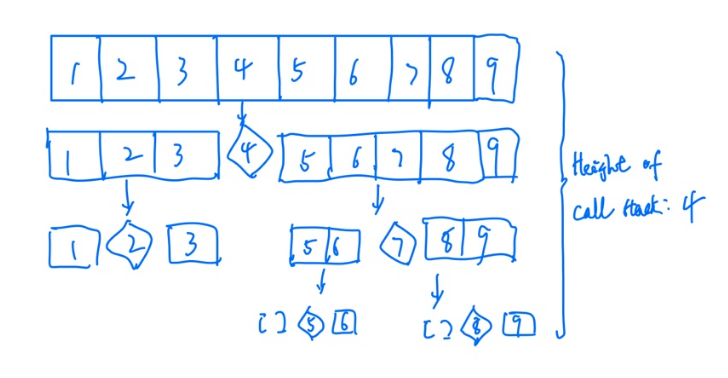 1 2 3 4 5 6 7 8 9
1 2 3 4 5 6 7 8 9
1 2 3 5 6 7 8 9
[ ] 5 6 [ ] 8 9
Height of
call stack: 4